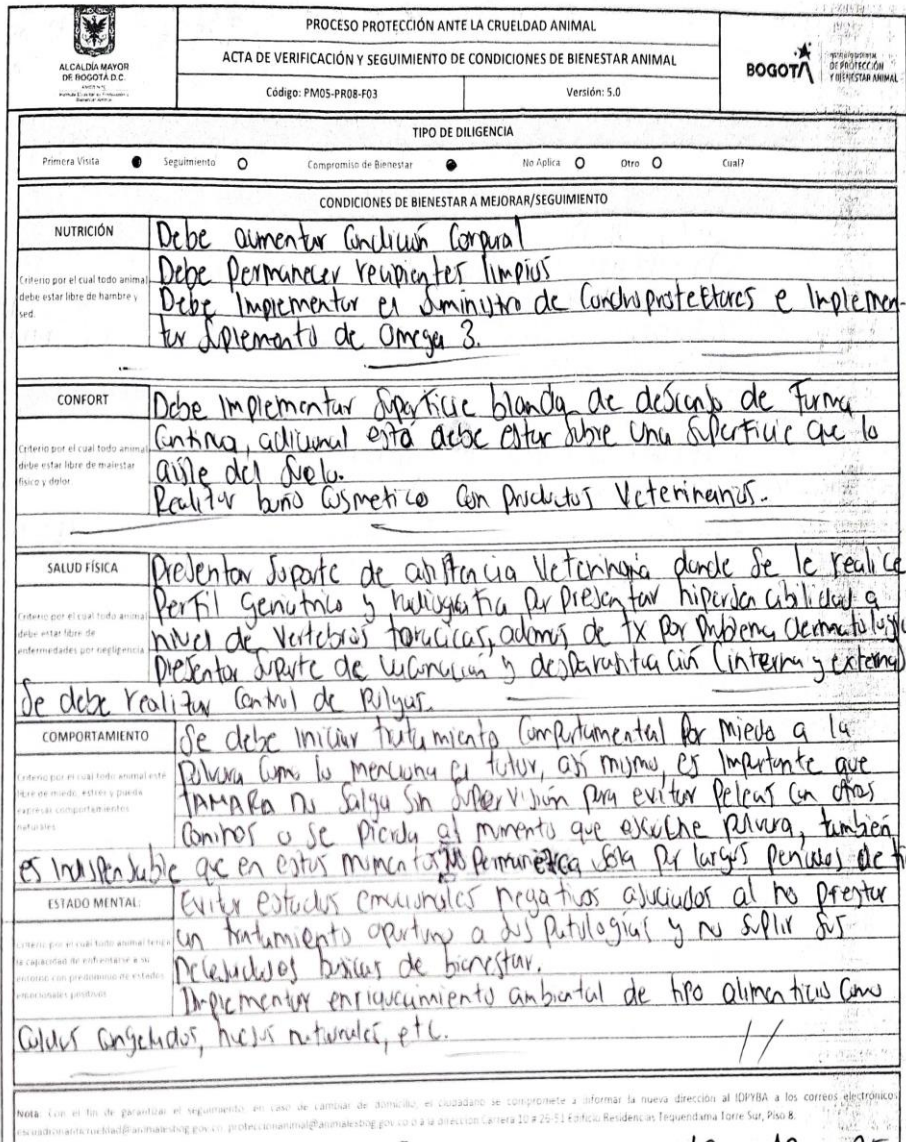 ALCALDÍA MAYOR
DE BOGOTÁ D.C.
PROCESO PROTECCIÓN ANTE LA CRUELDAD ANIMAL
ACTA DE VERIFICACIÓN Y SEGUIMIENTO DE CONDICIONES DE BIENESTAR ANIMAL
Código: PM05-PR08-F03 Versión: 5.0
BOGOTÁ
DE PROTECCIÓN
Y BIENESTAR ANIMAL
TIPO DE DILIGENCIA
Primera Visita Seguimiento Compromiso de Bienestar No Aplica Otro Cual?
CONDICIONES DE BIENESTAR A MEJORAR/SEGUIMIENTO
NUTRICIÓN
Criterio por el cual todo animal
debe estar libre de hambre y
sed.
Debe aumentar Condición Corporal
Debe Permanecer recipientes limpios
Debe Implementar el Suministro de Condroprotectores e Implemen-
tar Suplemento de Omega 3.
CONFORT
Criterio por el cual todo animal
debe estar libre de malestar
físico y dolor
Debe Implementar Superficie blanda de descanso de Forma
Continua, adicional está debe estar sobre una Superficie que lo
aísle del Suelo.
Realizar baño Cosmetico con productos Veterinarios.
SALUD FÍSICA
Criterio por el cual todo animal
debe estar libre de
enfermedades por negligencia
Presentar Soporte de asistencia Veterinaria donde Se le realice
Perfil Geriatrico y radiografia por presentar hipersencibilidad a
nivel de Vertebras toracicas, ademas de tx por problema dermatologico
Presentar Soporte de vacunación y desparasitación (interna y externa)
Se debe realizar Control de Pulgas.
COMPORTAMIENTO
Criterio por el cual todo animal esté
libre de miedo, estrés y pueda
expresar comportamientos
naturales
Se debe iniciar tratamiento Comportamental Por miedo a la
Polvora Como lo menciona el tutor, así mismo, es Importante que
TAMARA no Salga Sin Supervisión para evitar Peleas con otros
Caninos o se pierda al momento que escuche Polvora, también
es Indispensable que en estos momentos NO Permanezca sola por largos periodos de
ESTADO MENTAL:
Criterio por el cual todo animal tenga
la capacidad de enfrentarse a su
entorno con predominio de estados
emocionales positivos
Evitar estados emocionales negativos asociados al no prestar
un tratamiento oportuno a sus Patologías y no Suplir Sus
Necesidades basicas de bienestar.
Implementar enriquecimiento ambiental de tipo alimenticio como
Caldos congelados, huesos naturales, etc.
Nota: Con el fin de garantizar el seguimiento, en caso de cambiar de domicilio, el ciudadano se compromete a informar la nueva dirección al IDPYBA a los correos electrónicos
escuadronanticrueldad@animalesbog.gov.co, proteccionanimal@animalesbog.gov.co o a la dirección Carrera 10 # 26-51 Edificio Residencias Tequendama Torre Sur, Piso 8.